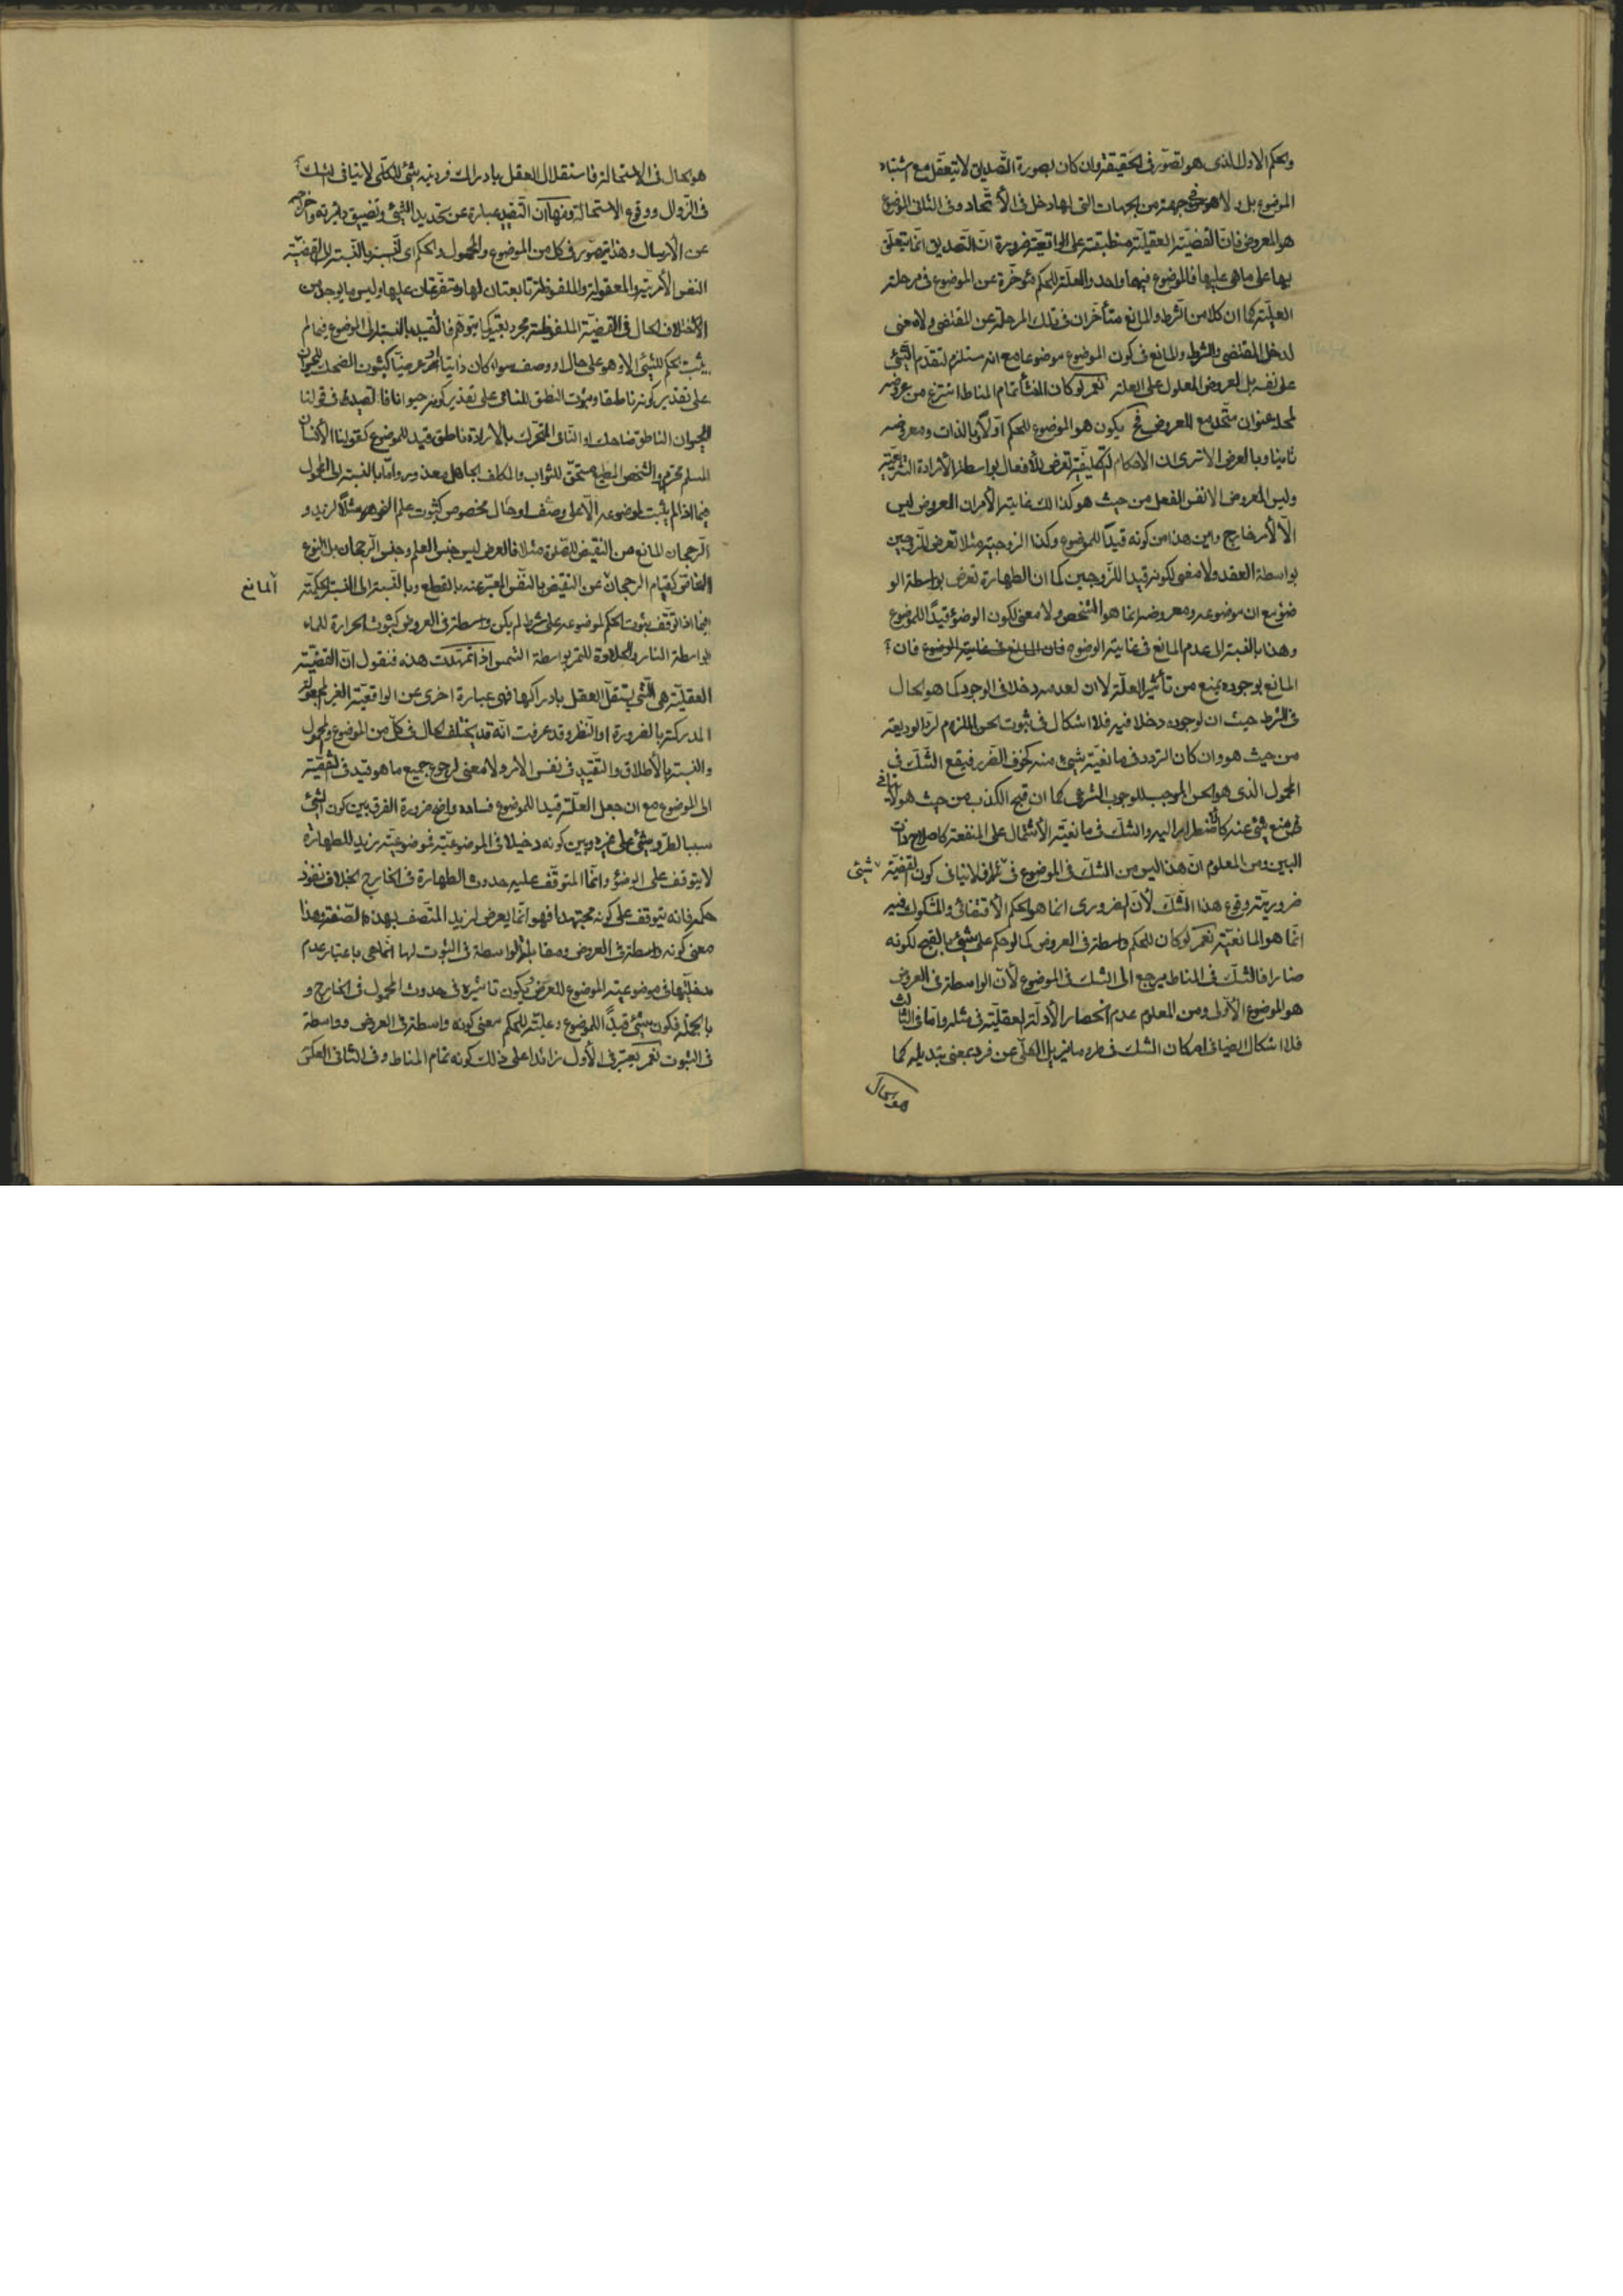 والحكم الاول الذى هو تصوّر فى الحقيقة وان كان بصورة التّصديق لا يتعقّل مع اشتباه
الموضوع بل ولا هو جهة من الجهات التى لها دخل فى الأتّحاد وفى الثانى الموضوع
هو المعروض فانّ القضيّة العقليّة منطبقة على الواقعيّة ضرورة انّ التّصديق انّما يتعلّق
بها على ما هى عليها فالموضوع فيهما واحد والعلّة للحكم مؤخّرة عن الموضوع فى مرحلة
العليّة كما ان كلا من الشرط والمانع متأخران فى تلك المرحلة عن المقتضى ولا معنى
لدخل المقتضى والشرط والمانع فى كون الموضوع موضوعا مع انه مستلزم لتقدّم الشّئ
على نفسه بل العروض المعلول على العلة نعم لو كان المنشأ تمام المناط انتزع من عروضه
لمحله عنوان متّحد مع المعروض فح يكون هو الموضوع للحكم اوّلا وبالذات ومعروضه
ثانيا وبالعرض الا ترى ان الاحكام التّكليفيّة تعرض للأفعال بواسطة الأرادة التّشريعيّة
وليس المعروض الا نفس الفعل من حيث هو كذالك غاية الأمر ان العروض ليس
الّا لأمر خارج واين هذا من كونه قيدًا للموضوع وكذا الزوجيّة مثلا تعرض للزّوجين
بواسطة العقد ولا معنى لكونه قيدا للزّوجين كما ان الطهارة تعرض بواسطة الو
ضوء مع ان موضوعه ومعروضه انما هو الشخص ولا معنى لكون الوضوء قيدًا للموضوع
وهذا بالنسبة الى عدم المانع فى غاية الوضوح فان المانع فى غاية الوضوح فان
المانع بوجوده يمنع من تأثير العلّة لا ان لعدمه دخلا فى الوجود كما هو الحال
فى الشرط حيث ان لوجوده دخلا فيه فلا اشكال فى ثبوت الحسن الملزم لردّ الوديعة
من حيث هو وان كان التردد فى مانعيّة شئ منه كخوف الضّرر فيقع الشّك فى
المحمول الذى هو الحسن الموجب للوجوب الشرعى كما ان قبح الكذب من حيث هو لا ينافى
منع شئ عنه كالأضطرار اليه والشّك فى مانعيّة الأشتمال على المنفعة كاصلاح ذات
البين ومن المعلوم انّ هذا ليس من الشّك فى الموضوع فى شئ فلا ينافى كون القضيّة
ضروريّة وقوع هذا الشّك لأنّ الضرورى انما هو الحكم الأقتضائى والمشكوك فيه
انّما هو المانعيّة نعم لو كان للحكم واسطة فى العروض كما لو حكم على شئ بالقبح لكونه
ضارا فالشّك فى المناط يرجع الى الشك فى الموضوع لأنّ الواسطة فى العروض
هو الموضوع الاوّل ومن المعلوم عدم انحصار الأدلّة العقليّة فى مثله وامّا فى الثّالث
فلا اشكال ايضا فى امكان الشك فى طروّ ما يزيل الكلّى عن فرد بمعنى تبديله كما
هو الحال
هو الحال فى الاستحالة فاستقلال العقل بادراك فرديّة شئ للكلّى لا ينافى الشك
فى الزّوال ووقوع الاستحالة ومنها ان التّقييد عبارة عن تحديد الشّئ وتضييق دائرته واخراجه
عن الأرسال وهذا يتصوّر فى كل من الموضوع والمحمول والحكم اى النّسبة بالنّسبة الى القضيّة
النفس الأمريّة والمعقولة والملفوظة تابعتان لها ومتفرّعتان عليها وليس ما يوجد من
الأختلاف الحال فى القضيّة الملفوظة مجرد تعبير كما يتوهم فالتّقييد بالنسبة الى الموضوع فيما لم
يثبت الحكم للشّئ الا وهو على حال او وصف سواء كان ذاتيا او عرضيّا كثبوت الضحك للحيوان
على تقدير كونه ناطقا وثبوت النطق للنامى على تقدير كونه حيوانا فالتقييد فى قولنا
الحيوان الناطق ضاحك او النّامى المتحرّك بالأرادة ناطق قيد للموضوع كقولنا الأنسان
المسلم محترم والشخص المطيع مستحقّ للثواب والمكلف الجاهل معذور وامّا بالنّسبة الى المحمول
فيما اذا لم يثبت لموضوعه الّا على وصف او حال مخصوص كثبوت علم النحو مثلًا لزيد و
الرّجحان المانع من النّقيض للصّلوة مثلا فالعرض ليس جنس العلم وجنس الرّجحان بل النوع
الخاصّ كقيام الرجحان عن النّقيض بالنّفس المعبّر عنه بالقطع وبالنّسبة الى النّسبة الحكميّة
المانع
فيما اذا توقّف ثبوت الحكم لموضوعه على شرط لم يكن واسطة فى العروض كثبوت الحرارة للماء
بواسطة النار والحلاوة للتّمر بواسطة الشمس اذا تمهّدت هذه فنقول انّ القضيّة
العقليّة هى الّتى يستقلّ العقل بادراكها فهى عبارة اخرى عن الواقعيّة الغير المجعولة
المدركة بالضرورة او النّظر وقد عرفت انّه قد يختلف الحال فى كلّ من الموضوع والمحمول
والنّسبة بالأطلاق والتّقييد فى نفس الأمر ولا معنى لرجوع جميع ما هو قيد فى القضيّة
الى الموضوع مع ان جعل العلّة قيدا للموضوع فساده واضح ضرورة الفرق بين كون الشّئ
سببا لطروّ شئ على غيره وبين كونه دخيلا فى الموضوعيّة فموضوعيّة زيد للطهارة
لا يتوقف على الوضوء وانّما المتوقّف عليه حدوث الطهارة فى الخارج بخلاف نفوذ
حكمه فانه يتوقف على كونه مجتهدا فهو انّما يعرض لزيد المتّصف بهذه الصّفة وهذا
معنى كونه واسطة فى العروض ومقابلتها لواسطة فى الثبوت لها انّما هى باعتبار عدم
مدخليّتها فى موضوعيّة الموضوع للعرض ويكون تأثيره فى حدوث المحمول فى الخارج و
بالجملة فكون شئ قيدًا للموضوع وعليّته للحكم معنى كونه واسطة فى العروض وواسطة
فى الثبوت نعم يعتبر فى الأول زائدا على ذلك كونه تمام المناط وفى الثانى العكس